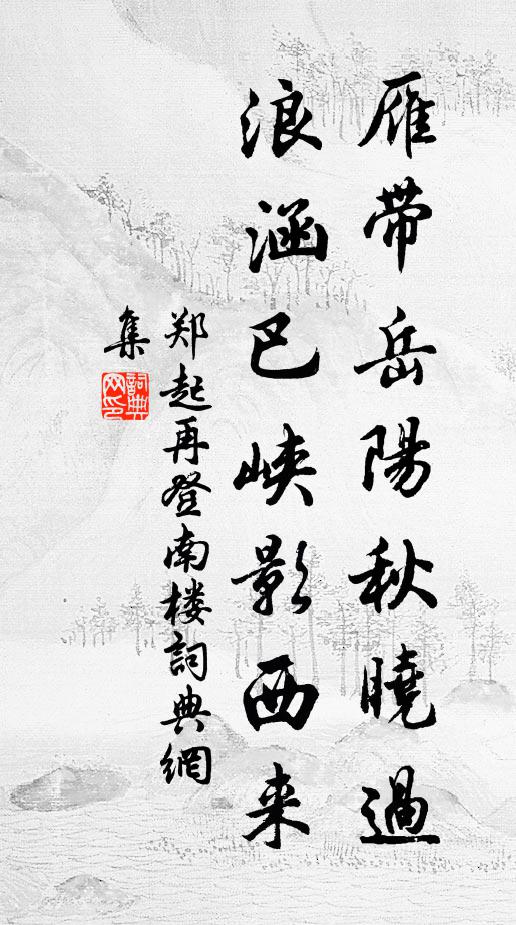 雁带岳陽秋曉過
浪涵巴峡影西来
郑起再登南楼詞典網
集
詞典
网印